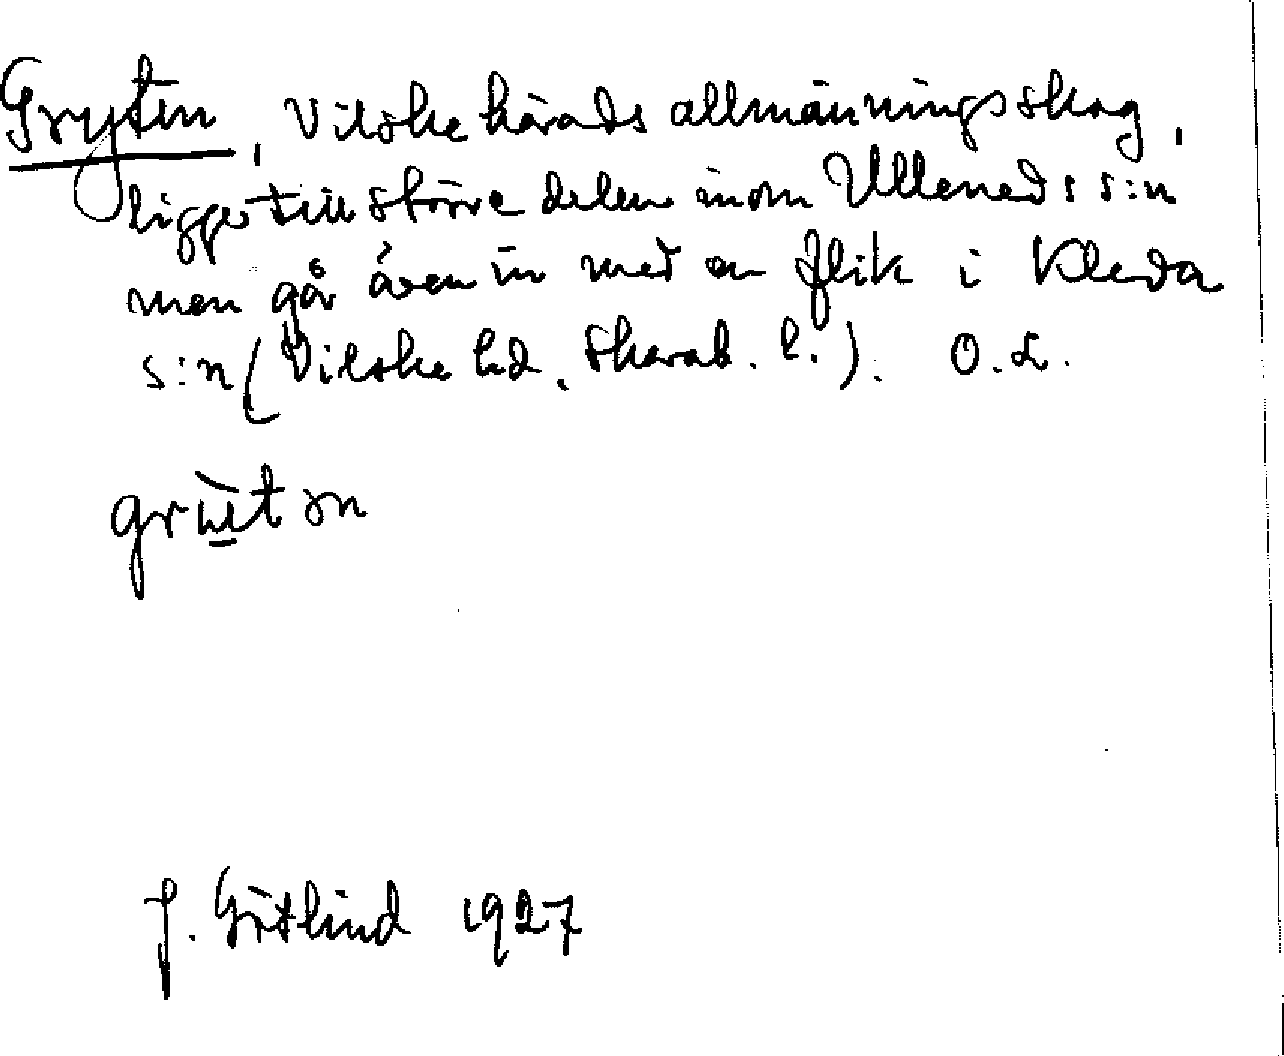 Gryten, Vilske härads allmänningsskog,
ligger till större delen inom Ulleneds s:n
men går även in med en flik i Kleva
s:n (Vilske hd. Skarab. l.). O.L.
J. Götlind 1927